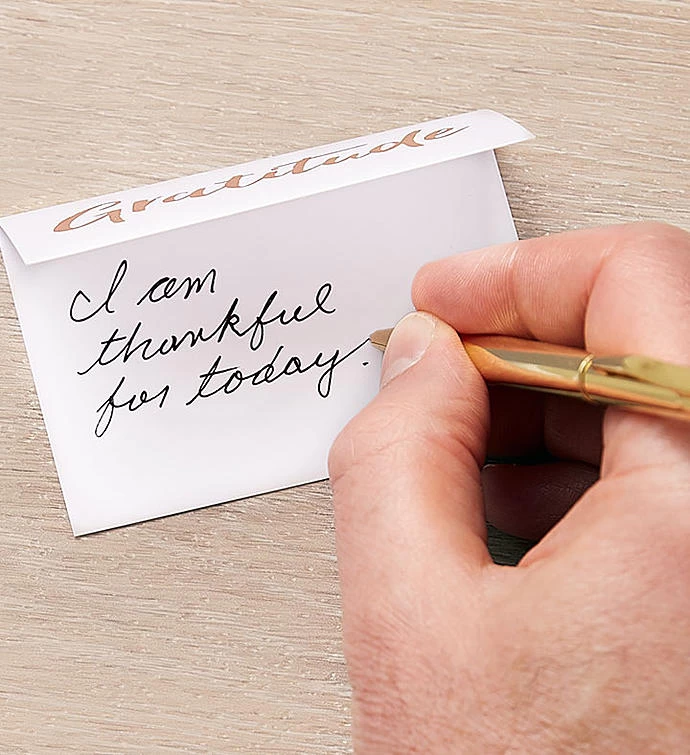 Gratitude
I am
thankful
for today.